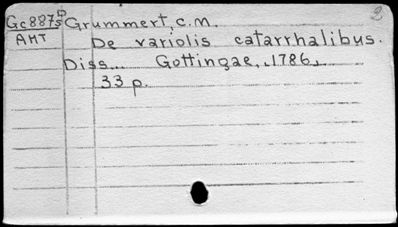 Gc887s D Grummert, C.N.
AMT De variolis catarrhalibus.
Diss... Gottingae, 1786.
33 p.